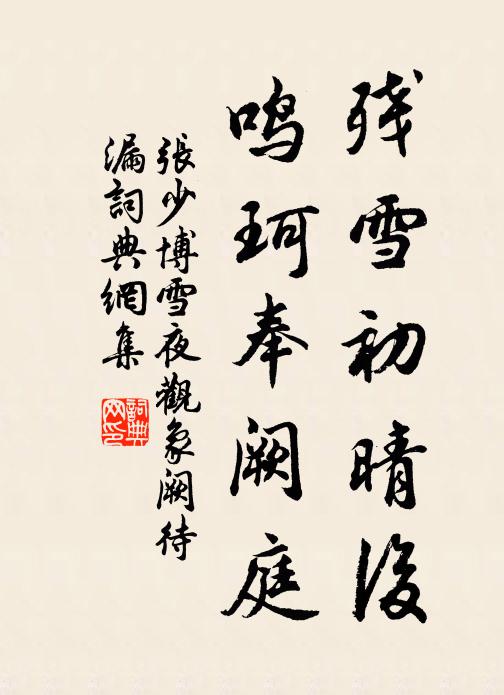 残雪初晴後
鸣珂奉阙庭
張少博雪夜觀象阙待
漏詞典網集
詞典
网印